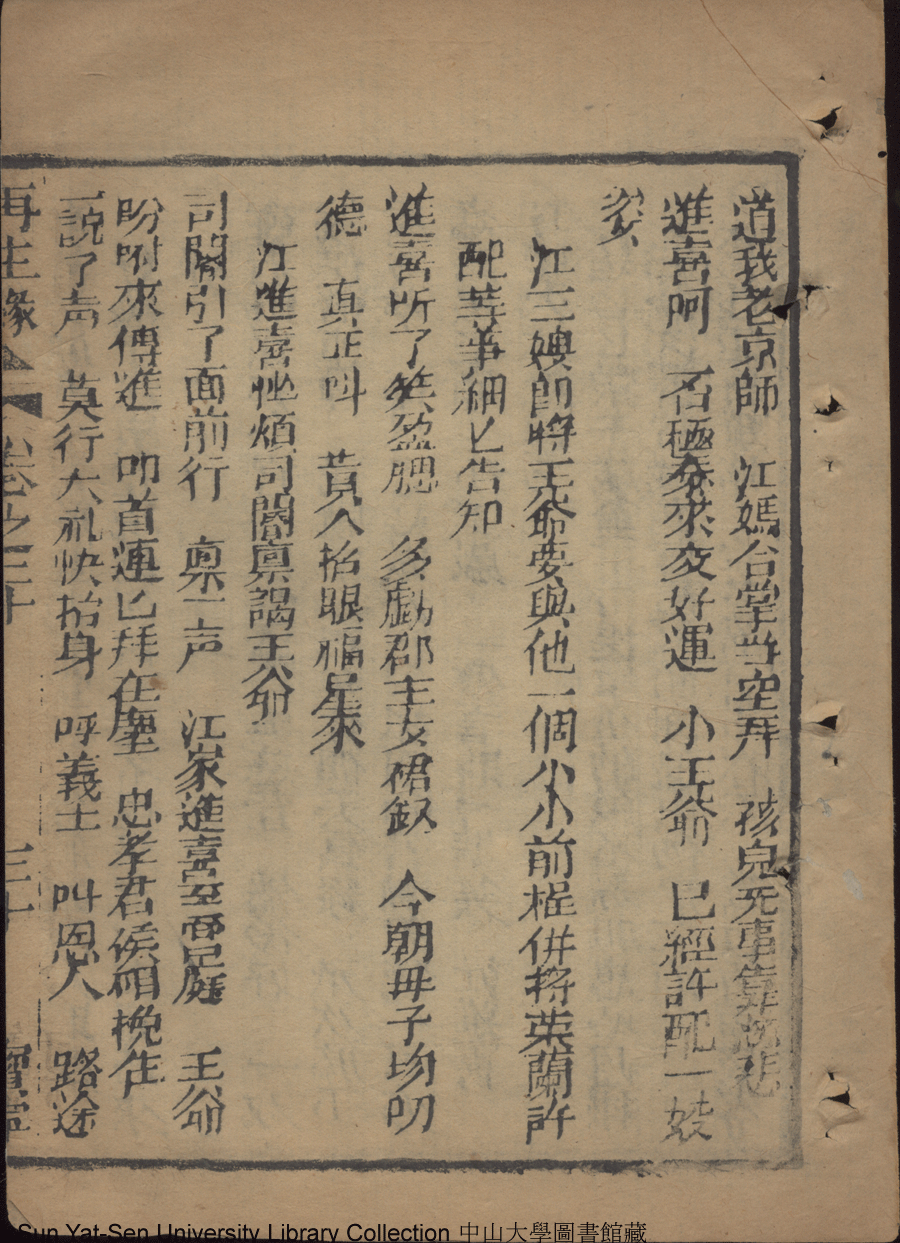 道我老京師　江媽合掌当空拜　孩児死事靠慈悲
進喜呵　石極參來交好運　小王爺　已經許配一妓
娑
江三嫂即將王爺要與他一個小小前程併將英蘭許
配等事細匕告知
進喜听了笑盈腮　多勷郡主女裙釵　今朝毋子均叨
德　真正叫　黄人抬眼福星來
江進喜怭煩司閽禀謁王爺
司閽引了面前行　禀一声　江家進喜至帝庭　王爺
盼咐來傳進　叩首連匕拜在塵　忠孝君侯相挽住
一說了声　莫行大礼快抬身　呼義士　叫恩人　路途
再生緣　卷之三十　三十
Sun Yat-Sen University Library Collection 中山大學圖書館藏